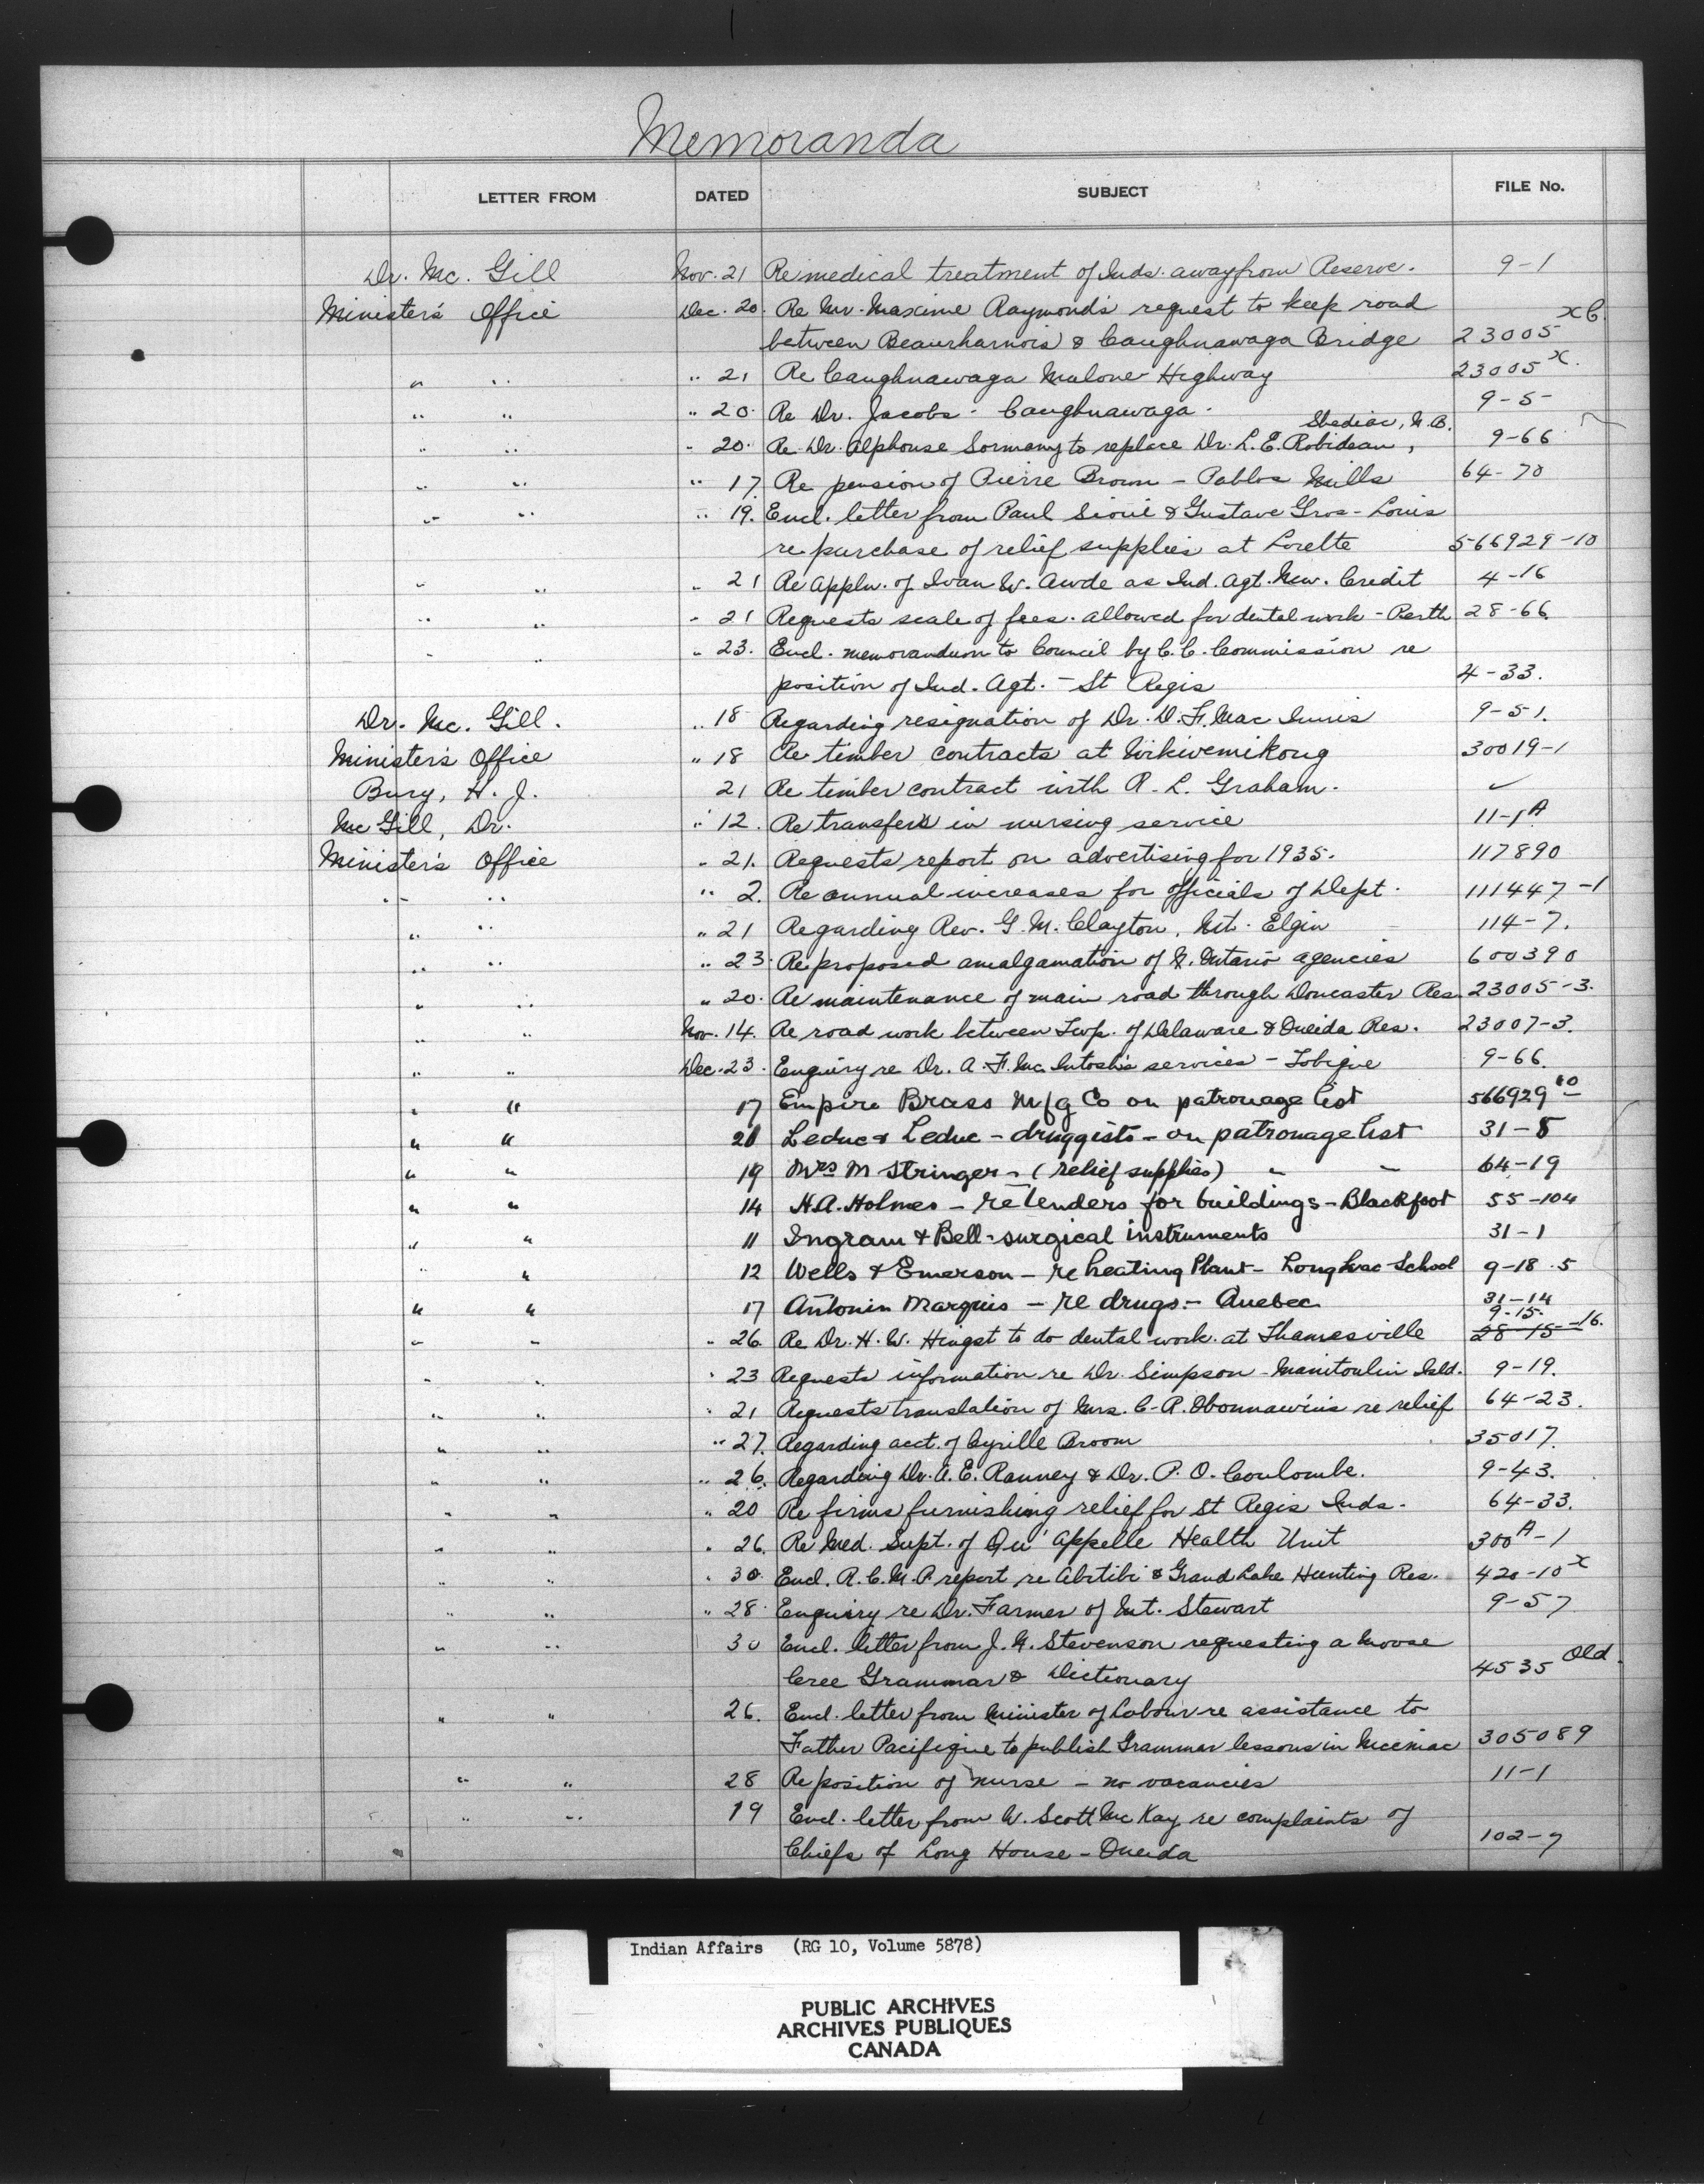 Memoranda
LETTER FROM DATED SUBJECT FILE No.
Dr. Mc. Gill Nov. 21 Re medical treatment of Inds. away from Reserve. 9-1
Minister's Office Dec. 20. Re Mr. Maxime Raymond's request to keep road
between Beaurharnois & Caughnawaga Bridge 23005 xC.
" " " 21 Re Caughnawaga Malone Highway 23005 x.
" " " 20. Re Dr. Jacobs - Caughnawaga. 9-5-
" " " 20. Re Dr. Alphonse Sormany to replace Dr. L. E. Robideau, Shediac, N.B. 9-66
" " " 17. Re pension of Pierre Brown - Pabbs Mills 64-70
" " " 19. Encl. letter from Paul Sioui & Gustave Gros-Louis
re purchase of relief supplies at Lorette 566929-10
" " " 21 Re appln. of Ivan W. Awde as Ind. Agt. New. Credit 4-16
" " " 21 Requests scale of fees allowed for dental work - Perth 28-66.
" " " 23. Encl. memorandum to Council by C.C. Commission re
position of Ind. Agt. - St Regis 4-33.
Dr. Mc. Gill. " 18 Regarding resignation of Dr. D. F. Mac Innis 9-51.
Minister's Office " 18 Re timber contracts at Wikwemikong 30019-1
Bury, H. J. 21 Re timber contract with R. L. Graham. ✓
Mc Gill, Dr. " 12. Re transfers in nursing service 11-1A
Minister's Office " 21. Requests report on advertising for 1935. 117890
" " " 2. Re annual increases for officials of Dept. 111447-1
" " " 21 Regarding Rev. G. M. Clayton, Mt. Elgin 114-7.
" " " 23. Re proposed amalgamation of S. Ontario agencies 600390
" " " 20. Re maintenance of main road through Doncaster Res. 23005-3.
" " Nov. 14. Re road work between Twp. of Delaware & Oneida Res. 23007-3.
" " Dec. 23. Enquiry re Dr. A. F. Mc Intosh's services - Tobique 9-66.
" " 17 Empire Brass Mfg Co on patronage list 566929-10
" " 21 Leduc & Leduc - druggists - on patronage list 31-8
" " 19 Mrs M Stringer - (relief supplies) " " 64-19
" " 14 H.A. Holmes - re tenders for buildings - Blackfoot 55-104
" " 11 Ingram & Bell - surgical instruments 31-1
" " 12 Wells & Emerson - re heating Plant - Long Lac School 9-18.5
" " 17 Antonin Marquis - re drugs - Quebec 31-14
9-15.
" " " 26. Re Dr. H. W. Hingst to do dental work at Thamesville 28-15-16.
" " " 23 Requests information re Dr. Simpson - Manitoulin Isld. 9-19.
" " " 21 Requests translation of Mrs. C. R. Obonnawin's re relief 64-23.
" " " 27. Regarding acct. of Cyrille Broom 35017.
" " " 26. Regarding Dr. A. E. Ranney & Dr. P. O. Coulombe. 9-43.
" " " 20 Re firms furnishing relief for St Regis Inds. 64-33.
" " " 26. Re Med. Supt. of Qu'appelle Health Unit 300A-1
" " " 30. Encl. R.C.M.P. report re Abitibi & Grand Lake Hunting Res. 420-10x
" " " 28. Enquiry re Dr. Farmer of Mt. Stewart 9-57
" " 30 Encl. letter from J. N. Stevenson requesting a Moose
Cree Grammar & Dictionary 4535 Old.
" " 26. Encl. letter from Minister of Labour re assistance to
Father Pacifique to publish Grammar lessons in Micmac 305089
" " 28 Re position of nurse - no vacancies 11-1
" " 19 Encl. letter from W. Scott Mc Kay re complaints of
Chiefs of Long House - Oneida 102-7
Indian Affairs (RG 10, Volume 5878)
PUBLIC ARCHIVES
ARCHIVES PUBLIQUES
CANADA